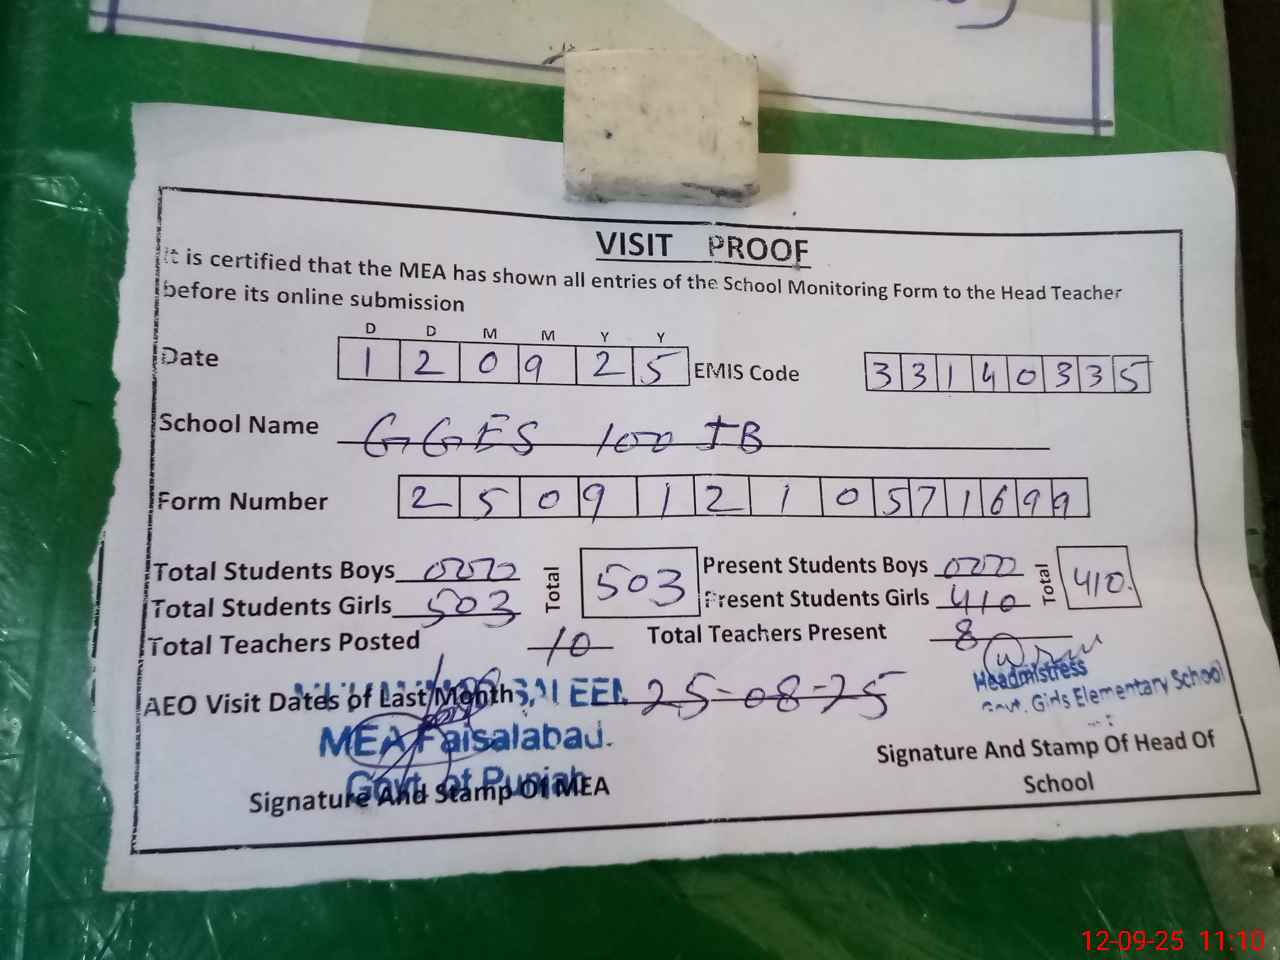 VISIT PROOF
It is certified that the MEA has shown all entries of the School Monitoring Form to the Head Teacher
before its online submission
D D M M Y Y
Date 1 2 0 9 2 5 EMIS Code 3 3 1 4 0 3 3 5
School Name GGES 100 JB
Form Number 2 5 0 9 1 2 1 0 5 7 1 6 9 9
Total Students Boys 000 Total 503 Present Students Boys 000 Total 410
Total Students Girls 503 Present Students Girls 410
Total Teachers Posted 10 Total Teachers Present 8
AEO Visit Dates of Last Month 25-08-25
Headmistress
Govt. Girls Elementary School
MEA Faisalabad.
Govt. of Punjab
Signature And Stamp Of MEA
Signature And Stamp Of Head Of
School
12-09-25 11:10